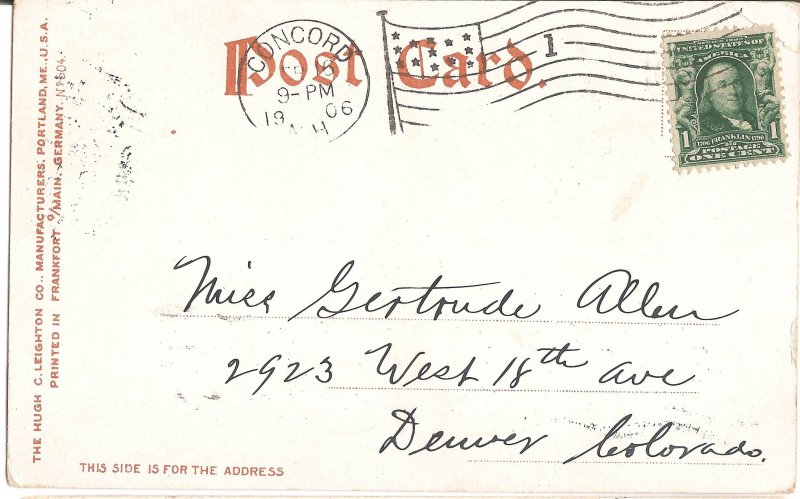 Post Card.
CONCORD
9-PM
06
1
UNITED STATES OF
AMERICA
1 FRANKLIN 1
POSTAGE
ONE CENT
Miss Gertrude Allen
2923 West 18th ave
Denver Colorado.
THIS SIDE IS FOR THE ADDRESS
THE HUGH C. LEIGHTON CO., MANUFACTURERS, PORTLAND, ME., U.S.A.
PRINTED IN FRANKFORT o/MAIN, GERMANY.